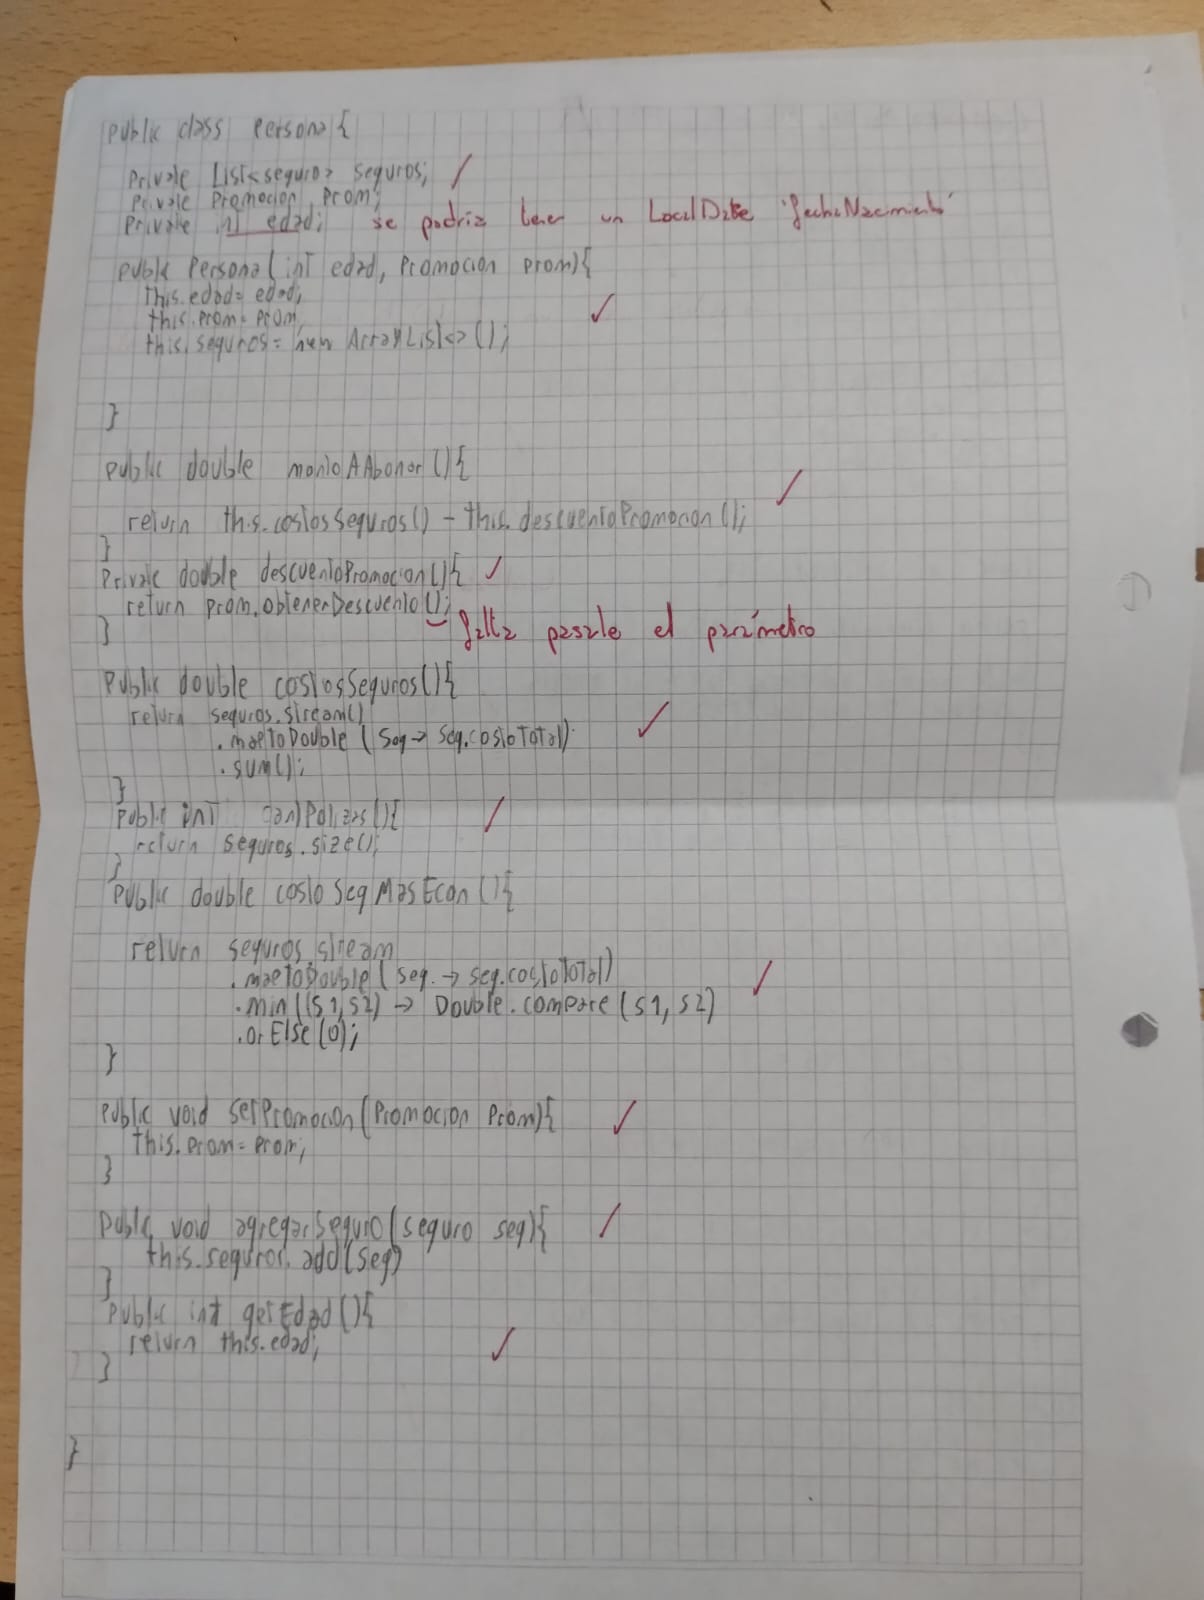 public class Persona{
Private List<seguro> seguros;
Private Promocion Prom;
Private int edad; se podria tener un LocalDate 'fechaNacimiento'
public Persona(int edad, Promocion prom){
this.edad= edad;
this.prom= prom,
this.seguros= new ArrayList<>();
}
public double montoAAbonar(){
return this.costosSeguros() - this.descuentoPromocion();
}
Private double descuentoPromocion(){
return prom.obtenerDescuento();
} falta pasarle el parámetro
Public double costosSeguros(){
return seguros.stream()
.maptoDouble (Seg-> seg.costoTotal)
.sum();
}
Public int cantPolizas(){
return seguros.size();
}
Public double costoSegMasEcon(){
return seguros stream
.maptoDouble(seg. -> seg.costoTotal)
.min((s1,s2) -> Double.compare(s1,s2)
.orElse(0);
}
public void setPromocion(Promocion Prom){
this.Prom= Prom;
}
Public void agregarSeguro(seguro seg){
this.seguros.add(seg)
}
Public int getEdad(){
return this.edad;
}
}